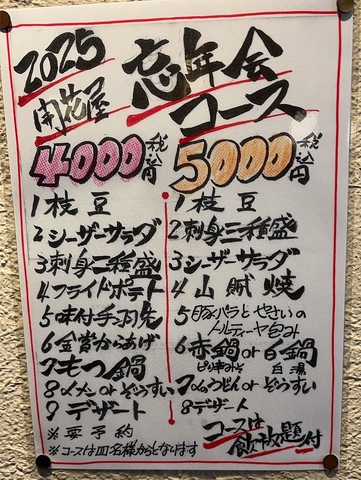 2025
開花屋
忘年会
コース
4000円 税込
1 枝豆
2 シーザーサラダ
3 刺身二種盛
4 フライドポテト
5 味付手羽先
6 金賞からあげ
7 もつ鍋
8 〆メン or ぞうすい
9 デザート
※要予約
※コースは四名様からとなります
5000円 税込
1 枝豆
2 刺身三種盛
3 シーザーサラダ
4 山賊焼
5 豚バラとやさいの
トルティーヤ包み
6 赤鍋 or 白鍋
ピリ辛みそ 白湯
7 〆うどん or ぞうすい
8 デザート
コースは
飲放題付